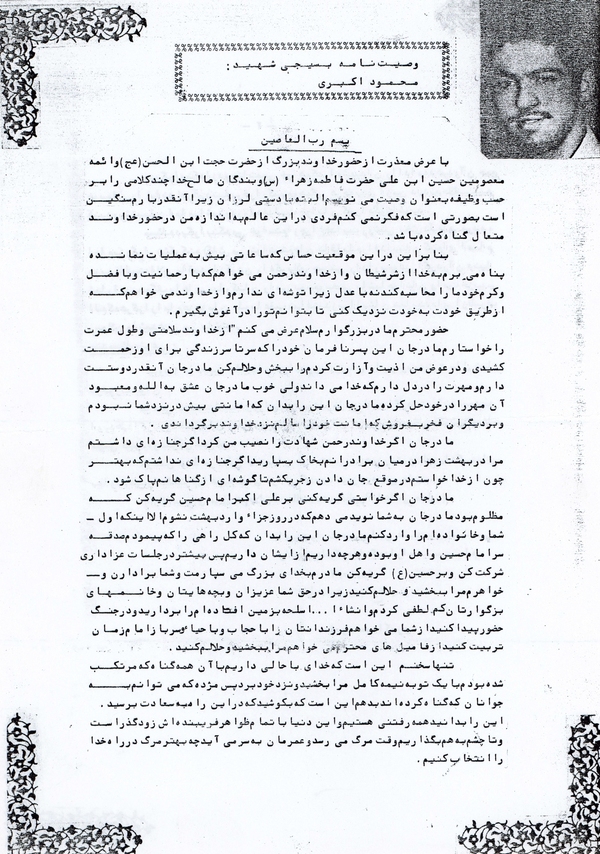 وصیت نامه بسیجی شهید :
محمود اکبری
بسم رب العاصین
با عرض معذرت از حضور خداوند بزرگ از حضرت حجت ابن الحسن (عج) و ائمه
معصومین حسین ابن علی حضرت فاطمه زهراء (س) و بندگان صالح خدا چند کلامی را بر
حسب وظیفه بعنوان وصیت می نویسم البته با دستی لرزان زیرا آنقدر بارم سنگین
است بصورتی است که فکر نمی کنم فردی در این عالم به اندازه من در حضور خداوند
متعال گناه کرده باشد .
بنابراین در این موقعیت حساس که ساعاتی بیش به عملیات نمانده
پناه می برم به خدا از شر شیطان و از خداوند رحمن می خواهم که با رحمانیت و با فضل
و کرم خود ما را محاسبه کند نه با عدل زیرا توشه ای ندارم و از خداوند می خواهم که
از طریق خودت به خودت نزدیک کنی تا بتوانم تو را در آغوش بگیرم .
حضور محترم مادر بزرگوارم سلام عرض می کنم " از خداوند سلامتی و طول عمرت
را خواستارم مادر جان این پسر نافرمان خود را که سرتاسر زندگی برای او زحمت
کشیدی و در عوض من اذیت و آزارت کردم را ببخش و حلالم کن مادر جان آنقدر دوستت
دارم و مهرت را در دل دارم که خدا می داند ولی خوب مادر جان عشق به الله و معبود
آن مهر را در خود حل کرده مادر جان این را بدان که امانتی بیش در نزد شما نبودم
و بر دیگران فخر بفروش که امانت خود را سالم نزد خداوند برگرداندی .
مادر جان اگر خداوند رحمن شهادت را نصیب من کرد اگر جنازه ای داشتم
مرا در بهشت زهرا در میان برادرانم بخاک بسپارید اگر جنازه ای نداشتم که بهتر
چون از خدا خواستم در موقع جان دادن زجر بکشم تا گوشه ای از گناهانم پاک شود .
مادر جان اگر خواستی گریه کنی بر علی اکبر امام حسین گریه کن که
مظلوم بود مادر جان به شما نوید می دهم که در روز جزاء وارد بهشت نشوم الا اینکه اول -
شما و خانواده ام را وارد کنم مادر جان این را بدان که کل راهی را که پیمودم صدقه
سر امام حسین و اهل او بوده و هر چه داریم از ایشان داریم پس بیشتر در جلسات عزاداری
شرکت کن و بر حسین (ع) گریه کن مادرم بخدای بزرگ می سپارمت و شما برادران و
خواهرم مرا ببخشید و حلالم کنید زیرا در حق شما عزیزان و بچه هایتان و خانمهای
بزگوارتان کم لطفی کردم و انشاءا ... اسلحه بزمین افتاده ام را بردارید و در جنگ
حضور پیدا کنید از شما می خواهم فرزندانتان را با حجاب و با حیا و سرباز امام زمان
تربیت کنید از فامیل های محترم می خواهم مرا ببخشید و حلالم کنید .
تنها سخنم این است که خدای با حالی داریم با آن همه گناه که مرتکب
شده بودم با یک توبه نیمه کامل مرا بخشید و نزد خود برد پس مژده که می توانم به
جوانان که گناه کرده اند بدهم این است که بکوشید که در این راه به سعادت برسید .
این را بدانید همه رفتنی هستیم و این دنیا با تمام ظواهر فریبنده اش زودگذر است
و تا چشم به هم بگذاریم وقت مرگ می رسد و عمرمان به سر می آید چه بهتر مرگ در راه خدا
را انتخاب کنیم .